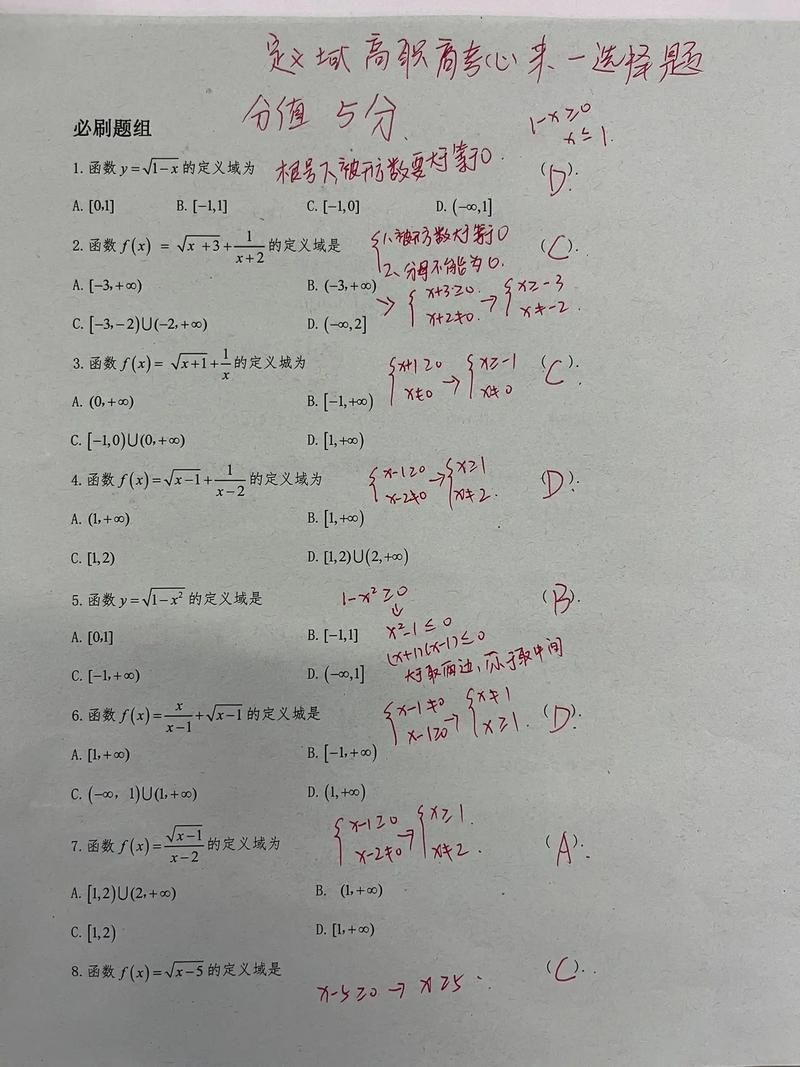 定义域 高职高考必来一选择题
分值 5分
必刷题组
1-x≥0
x≤1.
1. 函数 y=√(1-x) 的定义域为 根号下,被开方数要大于等于0. (D).
A. [0,1] B. [-1,1] C. [-1,0] D. (-∞,1]
2. 函数 f(x) = √(x+3)+1/(x+2) 的定义域是 {1、被开方数大于等于0 (C).
2、分母不能为0.
A. [-3,+∞) B. (-3,+∞) → {x+3≥0. → {x≥-3
x+2≠0. x≠-2.
C. [-3,-2)∪(-2,+∞) D. (-∞,2]
3. 函数 f(x)= √(x+1)+1/x 的定义城为 {x+1≥0 → {x≥-1 (C).
x≠0 x≠0
A. (0,+∞) B. [-1,+∞)
C. [-1,0)∪(0,+∞) D. [1,+∞)
4. 函数 f(x)=√(x-1)+1/(x-2) 的定义域为 {x-1≥0 → {x≥1 (D).
x-2≠0 x≠2.
A. (1,+∞) B. [1,+∞)
C. [1,2) D. [1,2)∪(2,+∞)
5. 函数 y=√(1-x²) 的定义域是 1-x²≥0 (B).
↓
A. [0,1] B. [-1,1] x²-1≤0
(x+1)(x-1)≤0
C. [-1,+∞) D. (-∞,1] 大于取两边,小于取中间
6. 函数 f(x)=x/(x-1)+√(x-1) 的定义城是 {x-1≠0 → {x≠1 (D).
x-1≥0 x≥1.
A. [1,+∞) B. [-1,+∞)
C. (-∞, 1)∪(1,+∞) D. (1,+∞)
7. 函数 f(x)=√(x-1)/(x-2) 的定义域为 {x-1≥0 → {x≥1. (A).
x-2≠0 x≠2.
A. [1,2)∪(2,+∞) B. (1,+∞)
C. [1,2) D. [1,+∞)
8. 函数 f(x)=√(x-5) 的定义域是 x-5≥0 → x≥5. (C).